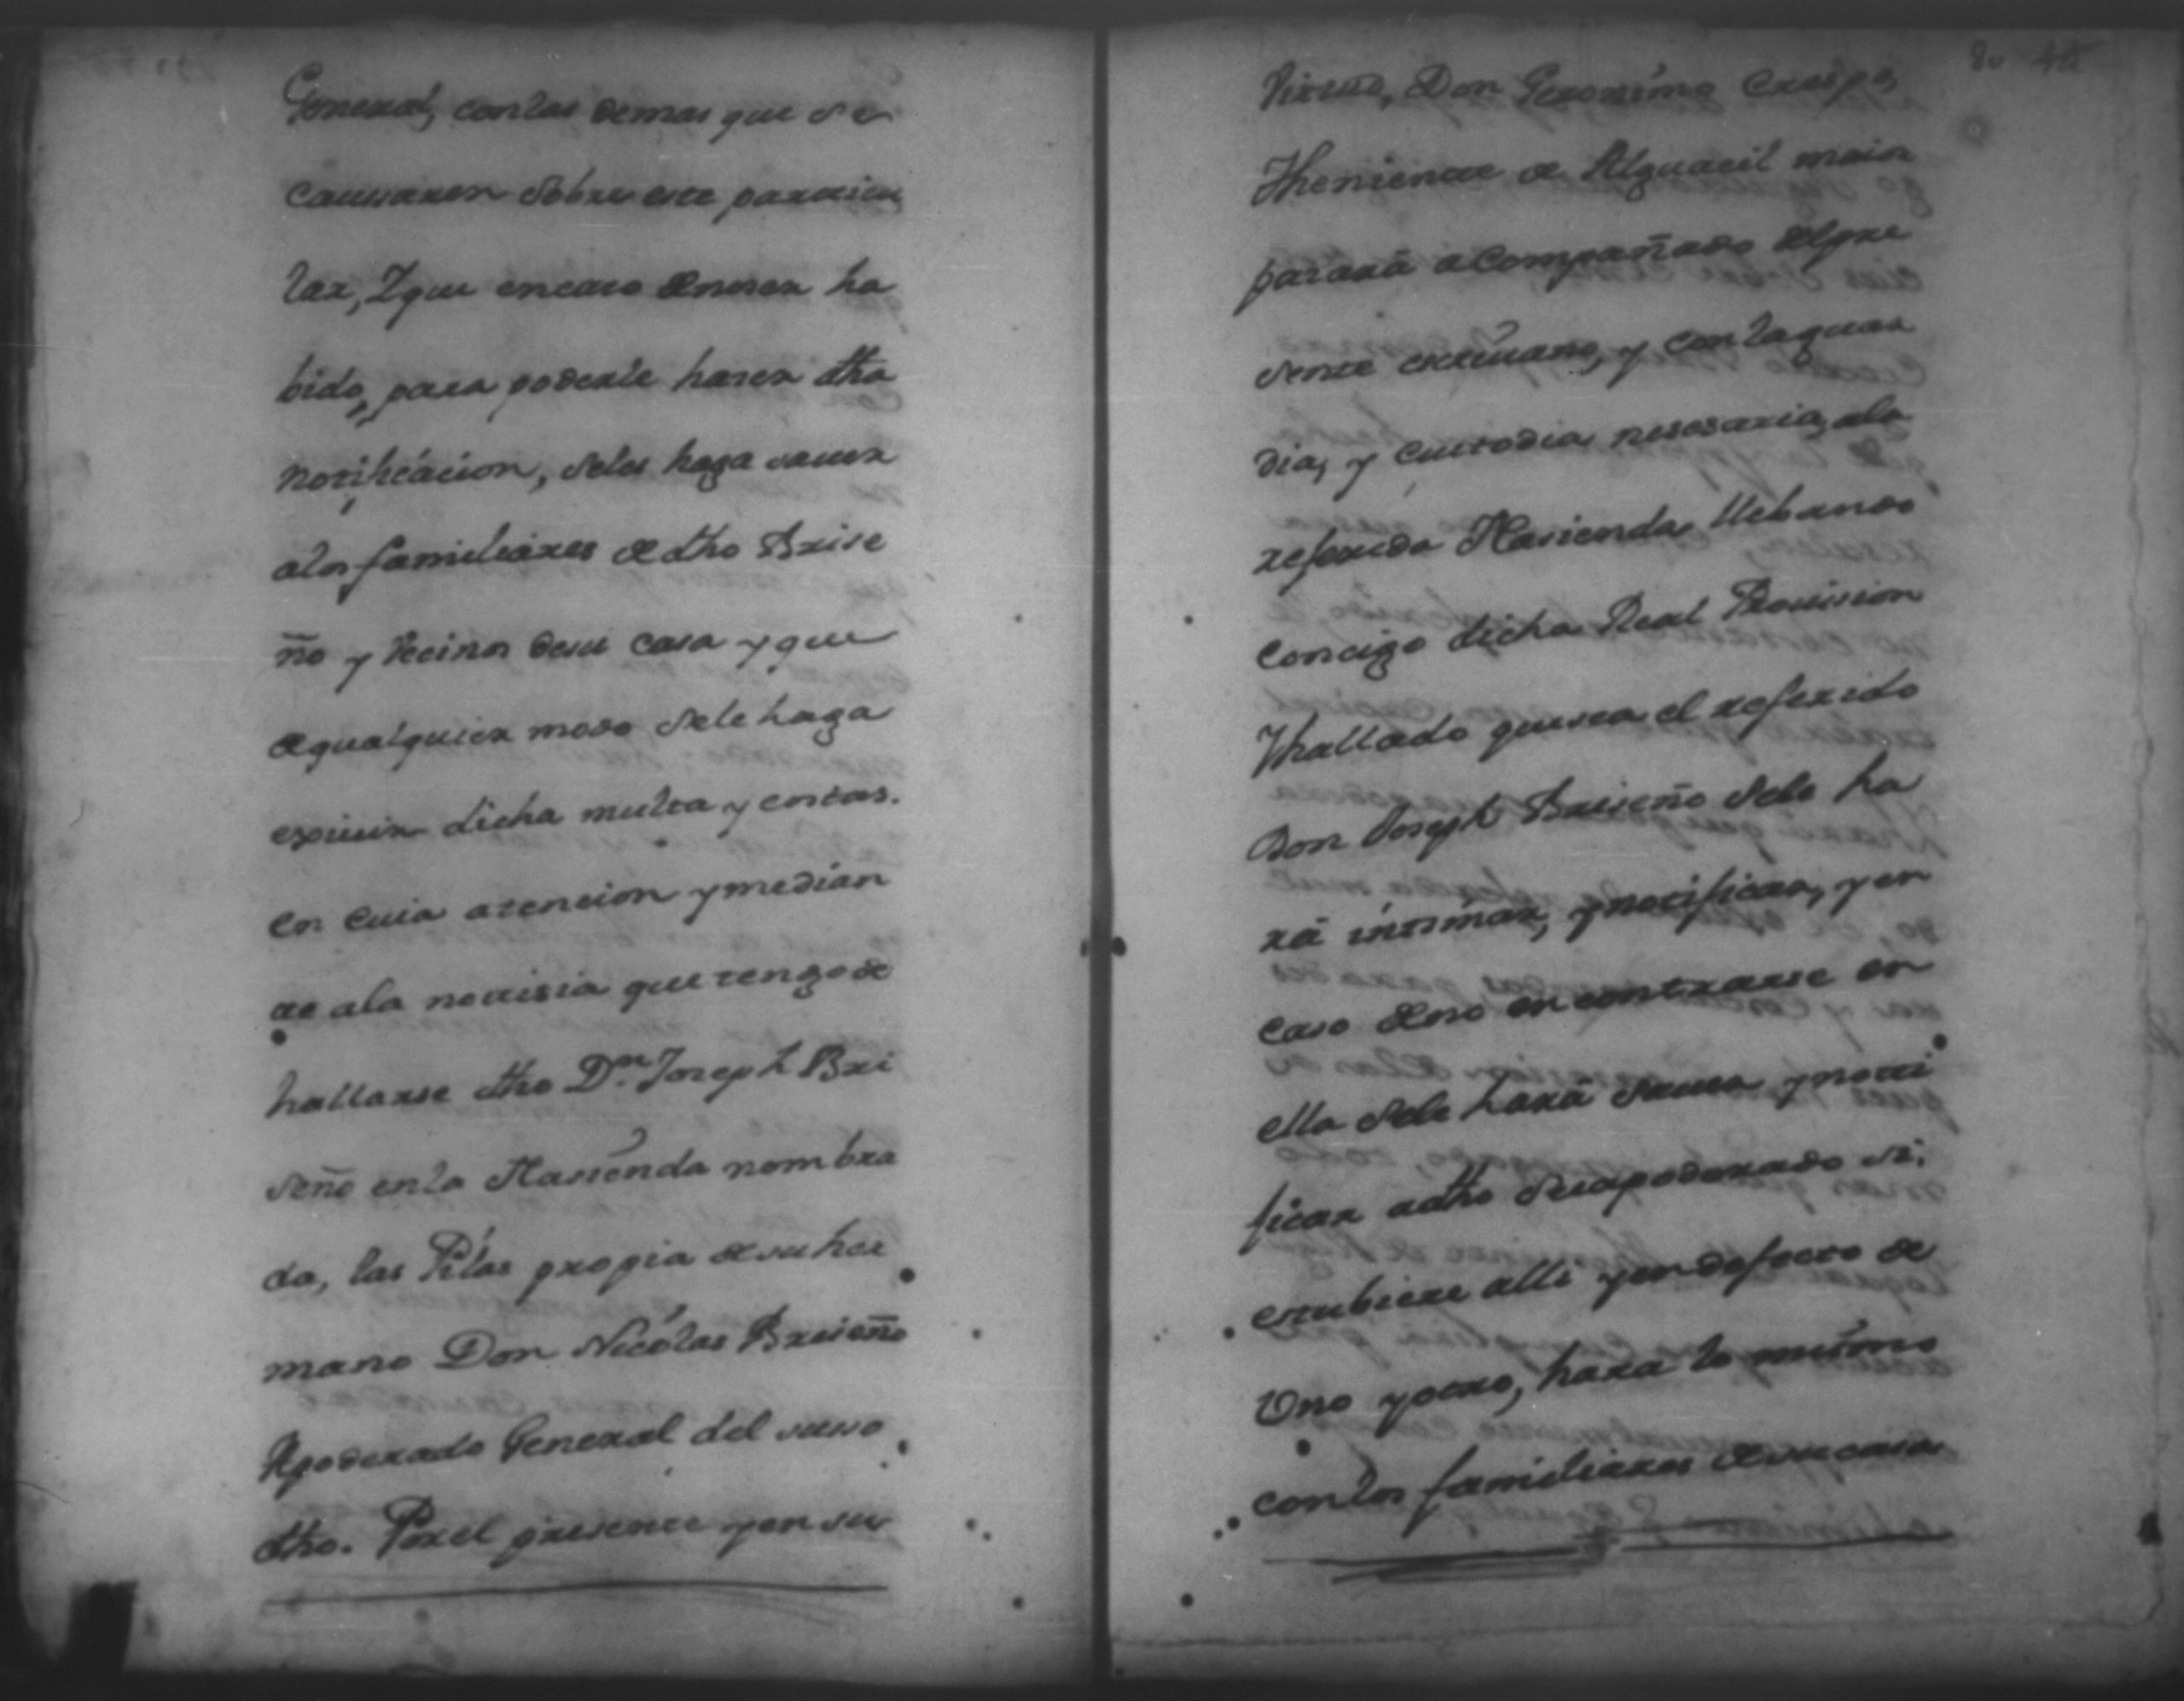 General, con las demas que se
causaren sobre este particu
lar, Y que encaso deneser ha
bido, para poderle haser dha
notificacion, seles haga sauer
alos familiares de dho Brise
ño y Vecinos desu casa y que
de qualquier modo sele haga
exiuir dicha multa y costas.
en cuia atencion y median
te ala notisia que tengo de
hallarse dho Dn. Joseph Bri
seño enla Hasienda nombra
da, las Pilas propia desu her
mano Don Nicolas Briseño
Apoderado General del suso
dho. Por el presente y en su
80
Virtud, Don Geronimo Crespo,
Theniente de Alguacil maior
pasará acompañado del pre
sente escriuano, y con laguar
dia, y custodia nesesaria, ala
referida Hasienda, llebando
consigo dicha Real Prouision
Y hallado que sea el referido
Don Joseph Briseño sele ha
rá intimar, y notificar, y en
caso deno encontrarse en
ella sele hará sauer y noti
ficar adho su apoderado si,
estubiere alli y en defecto de
Uno y otro, hara lo mismo
con los familiares desu casa